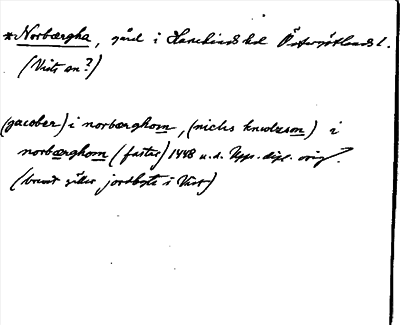 *Norbærgha, gård i Hanekinds hd Östergötlands l.
(Vists sn?)
(jacober) i norbærghom, (niclis knudzson) i
norbærghom (fastar) 1448 u.d. Upps. dipl. orig.
(brevet gäller jordbyte i Vist)